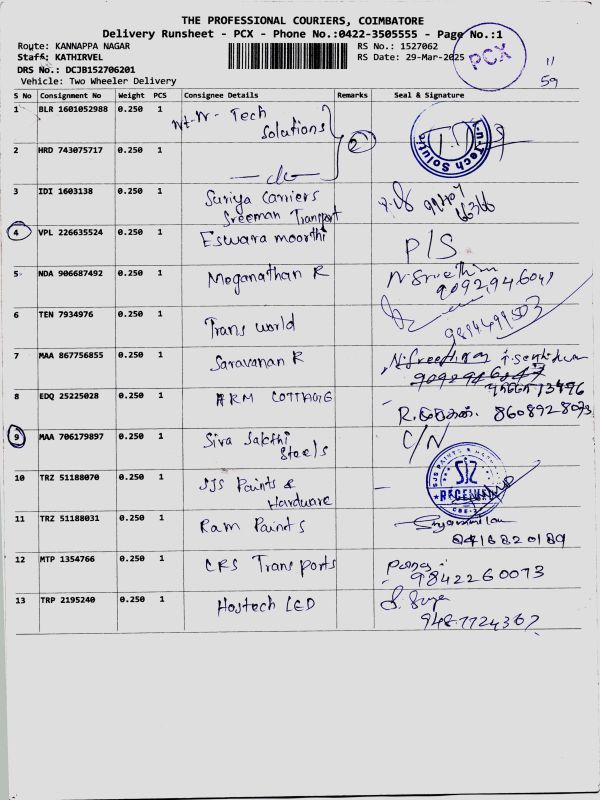 THE PROFESSIONAL COURIERS, COIMBATORE
Delivery Runsheet - PCX - Phone No.:0422-3505555 - Page No.:1
Route: KANNAPPA NAGAR
RS No.: 1527062
Staff: KATHIRVEL
RS Date: 29-Mar-2025
DRS No.: DCJB152706201
Vehicle: Two Wheeler Delivery
PCX
11
59
S No Consignment No Weight PCS Consignee Details Remarks Seal & Signature
1 BLR 1601052988 0.250 1 Tech Solutions
2 HRD 743075717 0.250 1
2
3 IDI 1603138 0.250 1 Suriya Carriers
Sreeman Transport
99407
66366
4 VPL 226635524 0.250 1 Eswara moorthi P/S
5 NDA 906687492 0.250 1 Moganathan R N.Sreethin
9092946049
6 TEN 7934976 0.250 1 Trans world
9894499503
7 MAA 867756855 0.250 1 Saravanan R
8 EDQ 25225028 0.250 1 ARM COTTAGE
8608928073
9 MAA 706179897 0.250 1 Siva Sakthi
Steels
C/N
10 TRZ 51188070 0.250 1 SJS Paints &
Hardware
SJS PAINTS &
RECEIVED
11 TRZ 51188031 0.250 1 Ram Paints
12 MTP 1354766 0.250 1 CRS Transports
9842260073
13 TRP 2195240 0.250 1 Hostech LED
9487724367